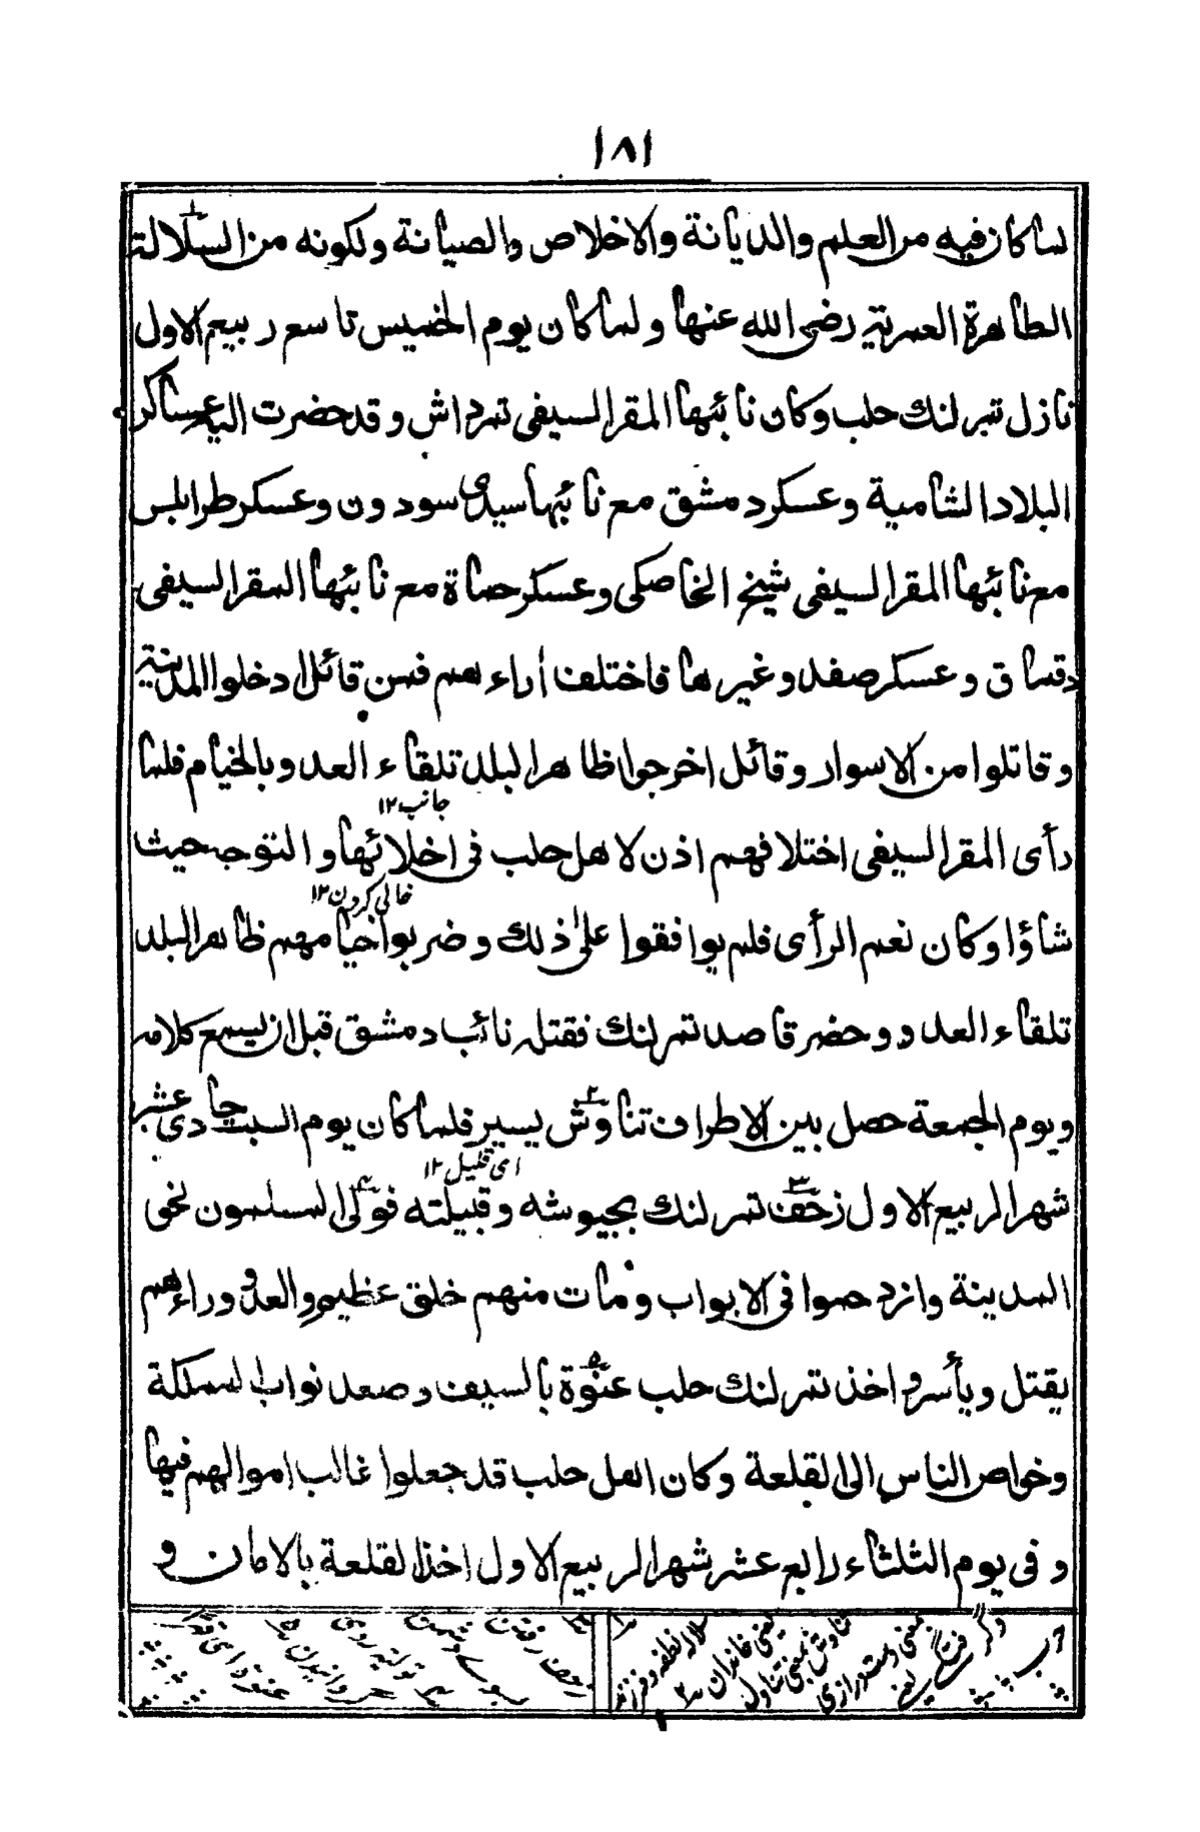 ١٨١
لما كان فيه من العلم والديانة والاخلاص والصيانة ولكونه من السلالة
الطاهرة العمرية رضى الله عنها ولما كان يوم الخميس تاسع ربيع الاول
نازل تمرلنك حلب وكان نائبها المقر السيفى تمرداش وقد حضرت اليه عساكر
البلاد الشامية وعسكر دمشق مع نائبها سيدى سودون وعسكر طرابلس
مع نائبها المقر السيفى شيخ الخاصكى وعسكر حماة مع نائبها المقر السيفى
دقماق وعسكر صفد وغيرها فاختلف أراءهم فمن قائل ادخلوا المدينة
وقاتلوا من الاسوار وقائل اخرجوا ظاهر البلد تلقاء العدو بالخيام فلما
جانب ١٢
رأى المقر السيفى اختلافهم اذن لاهل حلب فى اخلائها والتوجه حيث
خالى كردن ١٢
شاؤا وكان نعم الرأى فلم يوافقوا على ذلك وضربوا خيامهم ظاهر البلد
تلقاء العدو وحضر قاصد تمرلنك فقتله نائب دمشق قبل ان يسمع كلامه
ويوم الجمعة حصل بين الاطراف تناوش يسير فلما كان يوم السبت حادى عشر
اى قليل ١٢
شهر ربيع الاول زحف تمرلنك بجيوشه وقبيلته فولى المسلمون نحو
المدينة وازدحموا فى الابواب ومات منهم خلق عظيم والعدو وراءهم
يقتل ويأسر واخذ تمرلنك حلب عنوة بالسيف وصعد نواب المملكة
وخواص الناس الى القلعة وكان اهل حلب قد جعلوا غالب اموالهم فيها
وفى يوم الثلثاء رابع عشر شهر ربيع الاول اخذ القلعة بالامان و
سلاله نطفه و فرزند
يعنى خاندان
تناوش بمعنى تناول
بمعنى دست درازى